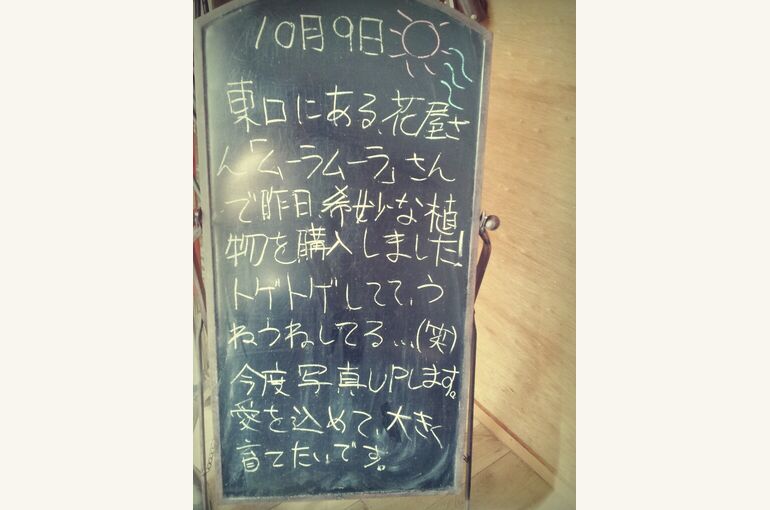 10月9日
東口にある、花屋さ
ん「ムーラムーラ」さん
で昨日、希妙な植
物を購入しました!
トゲトゲしてて、う
ねうねしてる...(笑)
今度写真UPします。
愛を込めて、大きく
育てたいです。